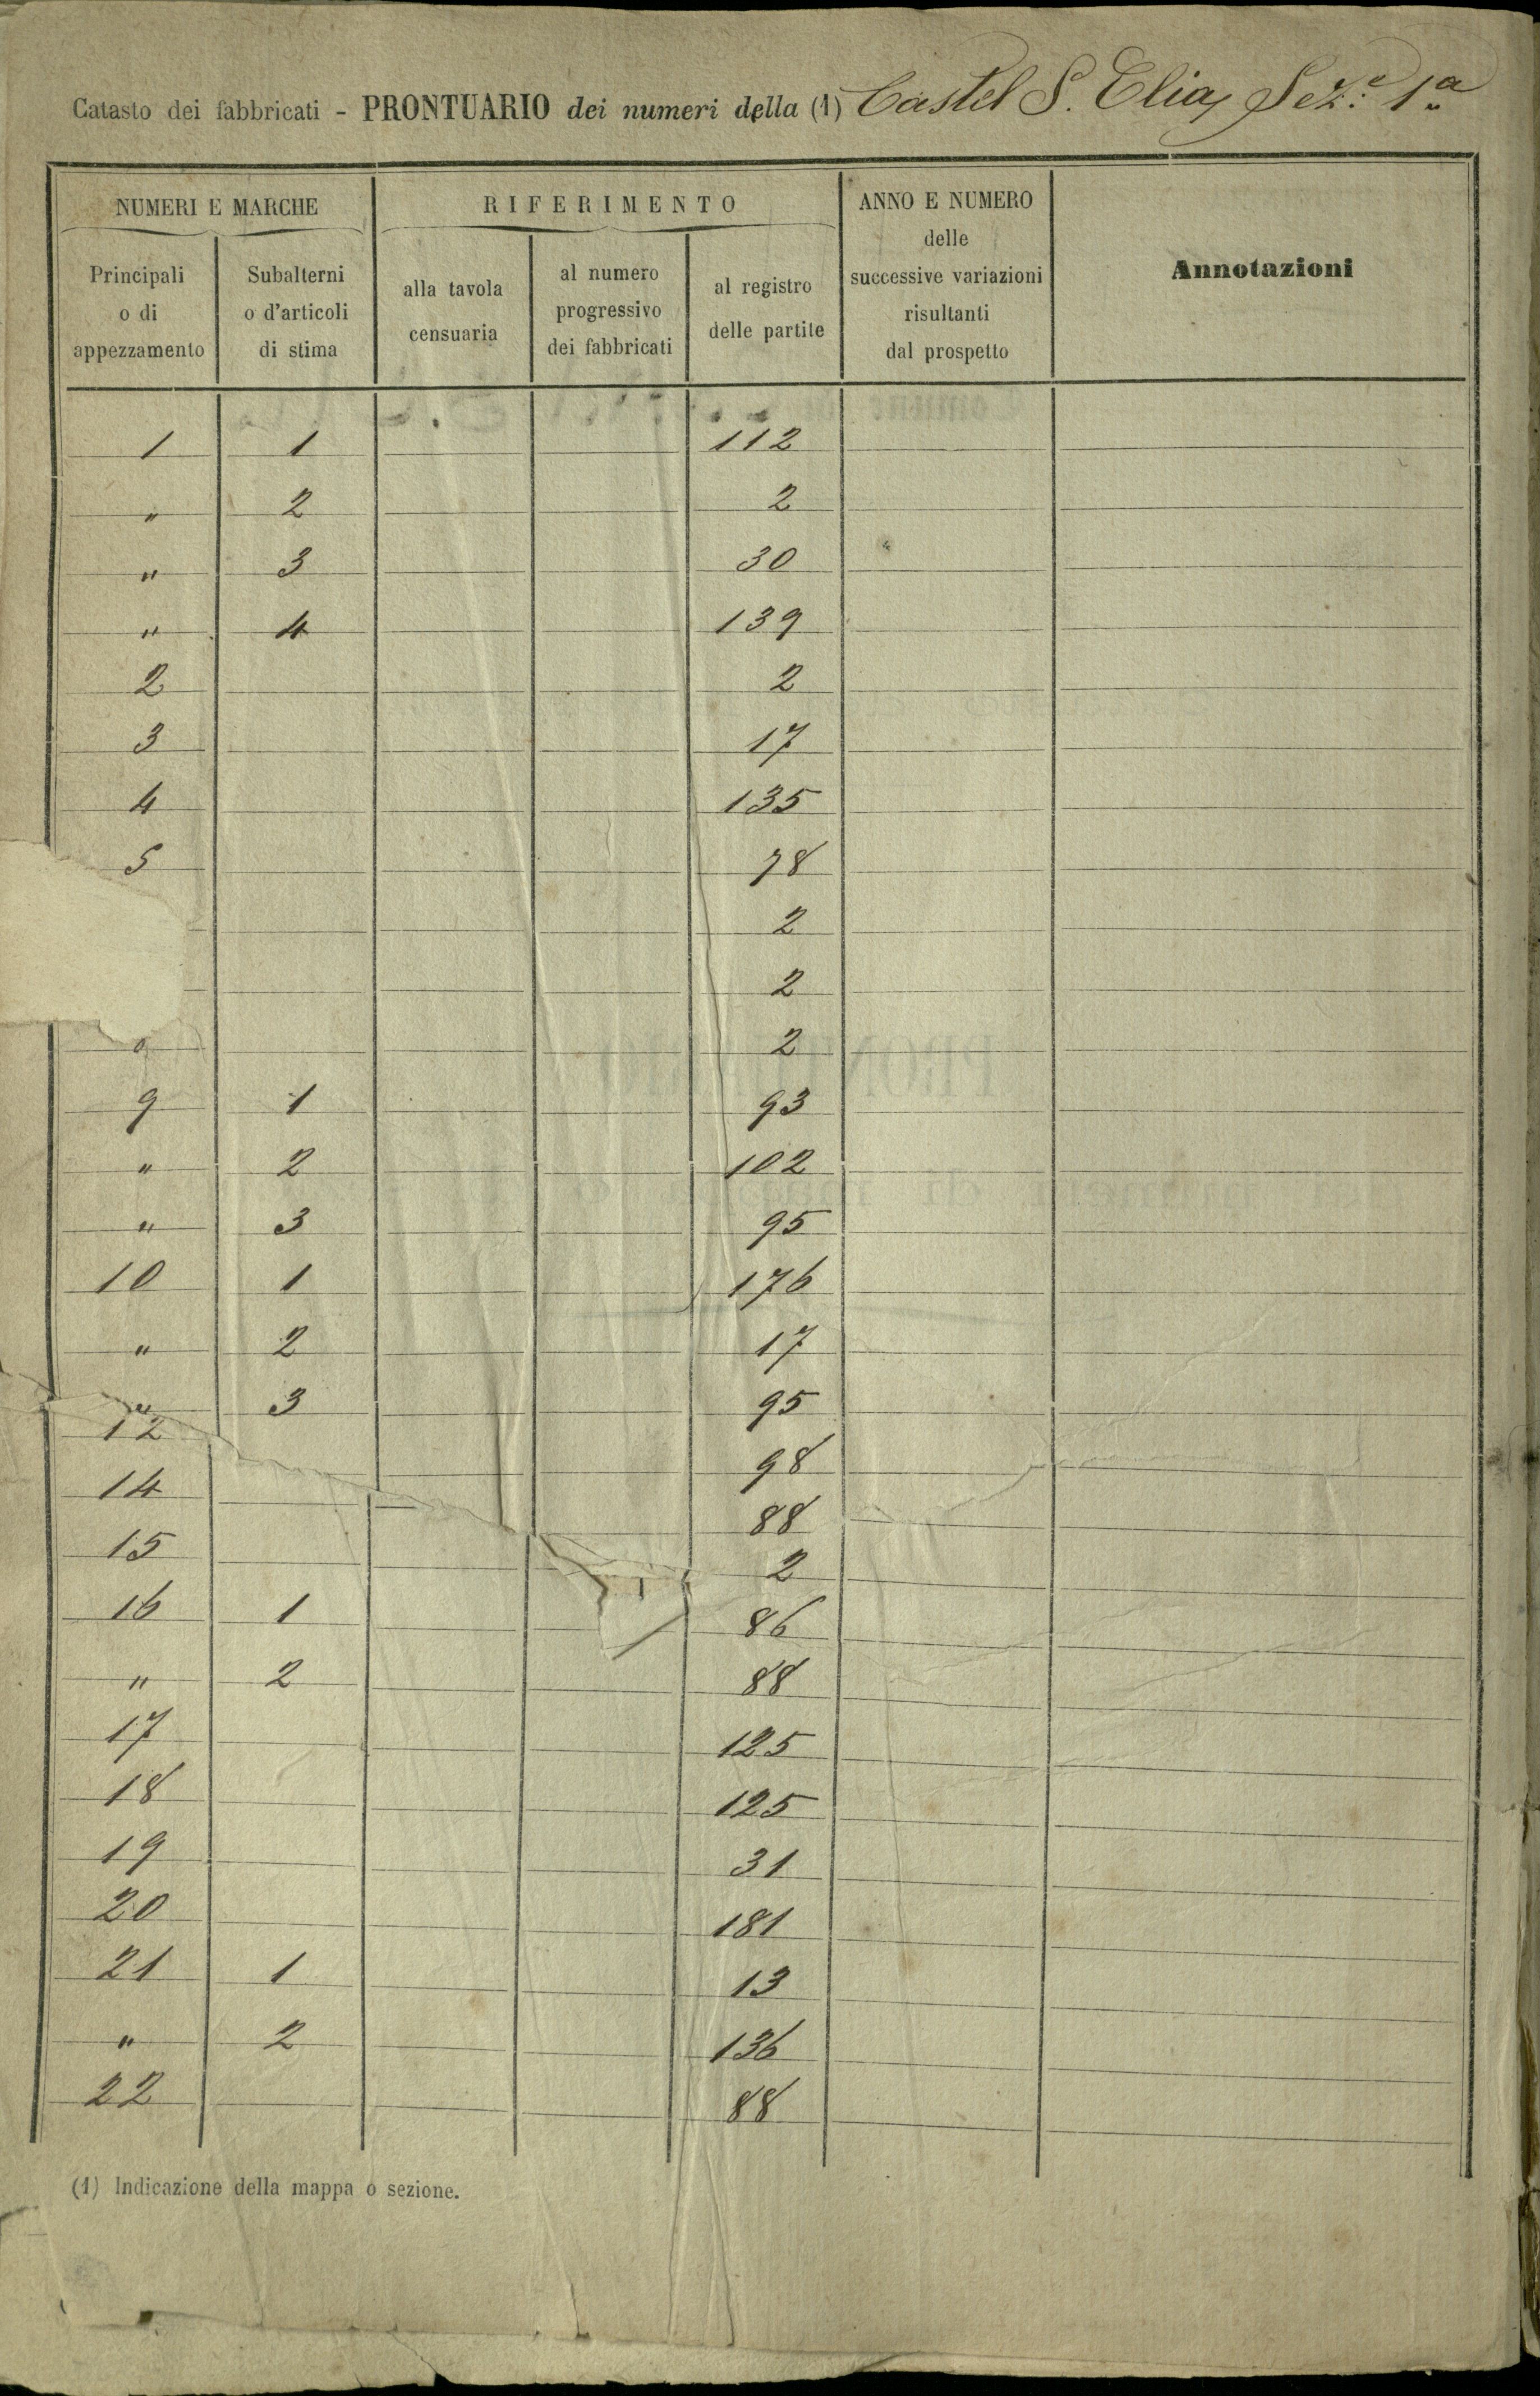 Catasto dei fabbricati - PRONTUARIO dei numeri della (1) Castel S. Elia, Sez.e 1a
NUMERI E MARCHE
Principali o di appezzamento
Subalterni o d'articoli di stima
RIFERIMENTO
alla tavola censuaria
al numero progressivo dei fabbricati
al registro delle partite
ANNO E NUMERO delle successive variazioni risultanti dal prospetto
Annotazioni
1 1 112
" 2 2
" 3 30
" 4 139
2 2
3 17
4 135
5 78
2
2
2
9 1 93
" 2 102
" 3 95
10 1 176
" 2 17
" 3 95
12 98
14 88
15 2
16 1 86
" 2 88
17 125
18 125
19 31
20 181
21 1 13
" 2 136
22 88
(1) Indicazione della mappa o sezione.